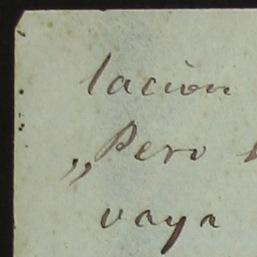 lacion
„Pero
vaya